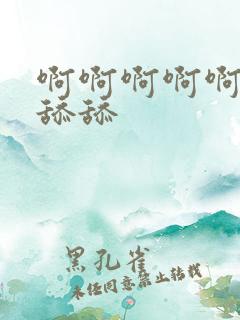 啊啊啊啊啊
舔舔
黑孔雀
未经同意禁止转载